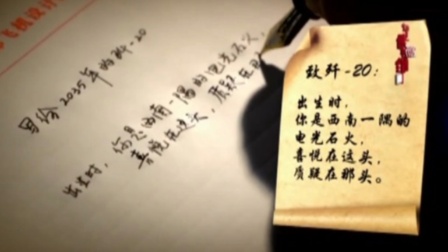 写给2035年的歼-20
出生时,你是西南一隅的电光石火,
喜悦在这头,质疑在
致歼-20:
出生时,
你是西南一隅的
电光石火,
喜悦在这头,
质疑在那头。